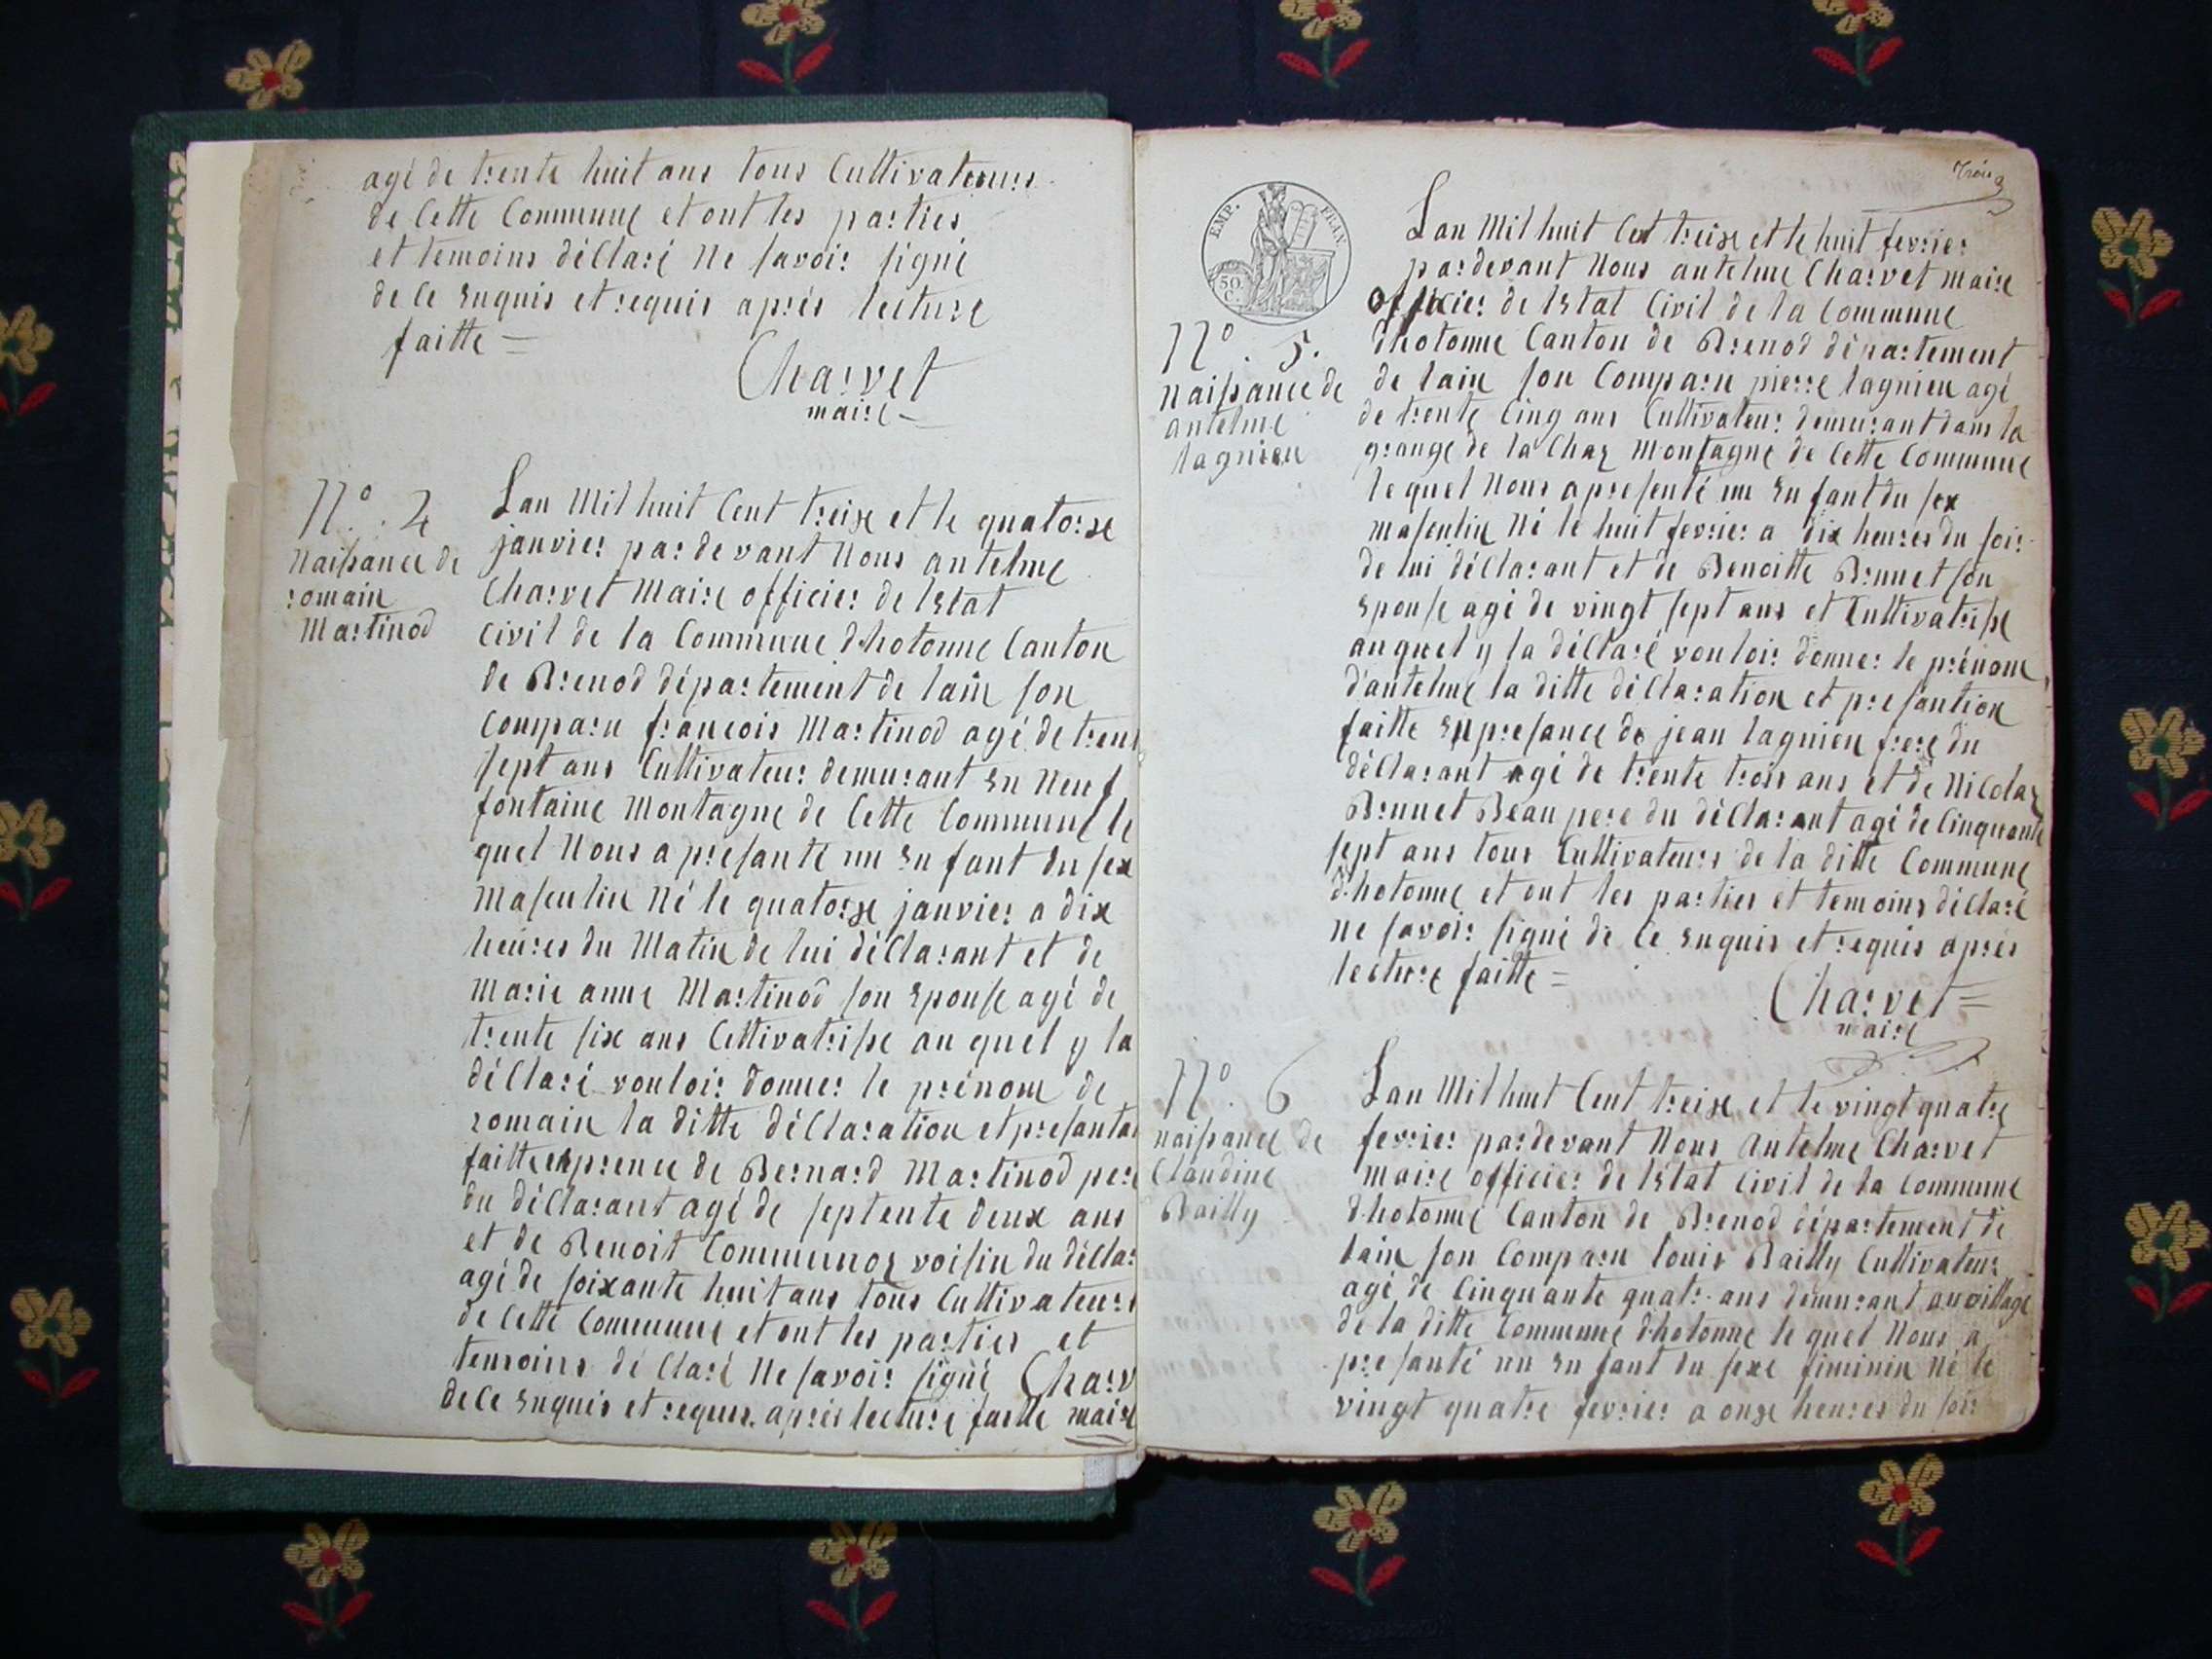 agé de trente huit ans tous Cultivateurs
de Cette Commune et ont les parties
et temoins déClaré Ne savoir signé
de Ce Enquis et requis aprés lecture
faitte =
Charvet
maire
N° . 4
Naissance de
romain
Martinod
Lan Mil huit Cent treize et le quatorze
janvier par devant Nous antelme
Charvet Maire officier de lEtat
Civil de la Commune dhotonne Canton
de Brenod département de lain son
Comparu francois Martinod agé de trent
sept ans Cultivateur demurant En Neuf
fontaine Montagne de Cette Commune le
quel Nous a presante un Enfant du sex
Masculin Né le quatorze janvier a dix
heures du Matin de lui déClarant et de
Marie anne Martinod son Epouse agé de
trente six ans Cultivatrisse au quel y la
déClaré vouloir donner le prénom de
romain la ditte déClaration et presanta
faitte en prence de Bernard Martinod pere
du déClarant agé de septente deux ans
et de Benoit Communoz voisin du déClar
agé de soixante huit ans tous Cultivateurs
de Cette Commune et ont les parties et
temoins déClaré Ne savoir signé Charv
de Ce Enquis et requis aprés lecture faitte maire
Trois
EMP. FRAN.
50
C.
N° . 5.
Naissance de
antelme
lagnieu
Lan Mil huit Cent treize et le huit fevrier
par devant Nous antelme Charvet maire
officier de lEtat Civil de la Commune
dhotonne Canton de Brenod département
de lain son Comparu pierre lagnieu agé
de trente Cinq ans Cultivateur demurant dans la
grange de la Chaz Montagne de Cette Commune
le quel Nous a presenté un Enfant du sex
masculin Né le huit fevrier a dix heures du soir
de lui déClarant et de Benoitte Brunet son
Epouse agé de vingt sept ans et Cultivatrisse
auquel y la déClaré vouloir donner le prénom
dantelme la ditte déClaration et presantion
faitte En presance de jean lagnieu frere du
déClarant agé de trente trois ans et de Nicolaz
Brunet Beau pere du déClarant agé de Cinquante
sept ans tous Cultivateurs de la ditte Commune
dhotonne et ont les parties et temoins déClaré
ne savoir signé de Ce Enquis et requis aprés
lecture faitte =
Charvet =
maire
N° . 6
naissance de
Claudine
Bailly
Lan Mil huit Cent treize et le vingt quatre
fevrier par devant Nous Antelme Charvet
maire officier de lEtat Civil de la Commune
dhotonne Canton de Brenod département de
lain son Comparu louis Bailly Cultivateur
agé de Cinquante quatr ans demurant au village
de la ditte Commune dhotonne le quel Nous a
presanté un Enfant du sexe fiminin Né le
vingt quatre fevrier a onze heures du soir